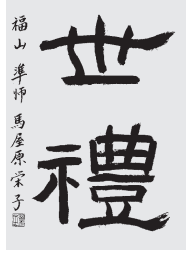 世禮
福山 準師 馬屋原栄子